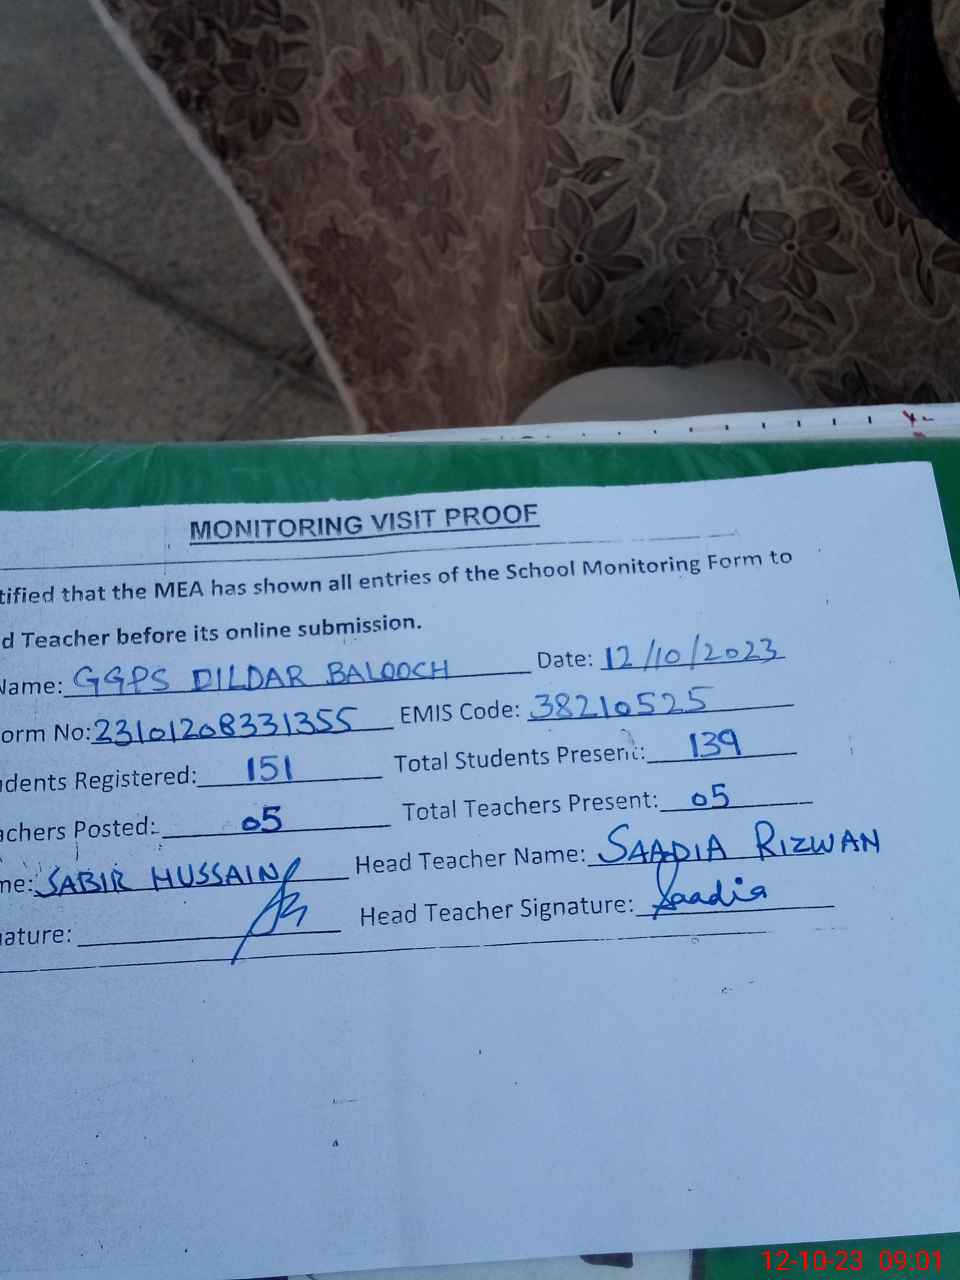 MONITORING VISIT PROOF
tified that the MEA has shown all entries of the School Monitoring Form to
d Teacher before its online submission.
Name: GGPS DILDAR BALOOCH Date: 12/10/2023
orm No: 23101208331355 EMIS Code: 38210525
udents Registered: 151 Total Students Present: 139
achers Posted: 05 Total Teachers Present: 05
me: SABIR HUSSAIN Head Teacher Name: SAADIA RIZWAN
nature: Head Teacher Signature: Saadia
12-10-23 09:01